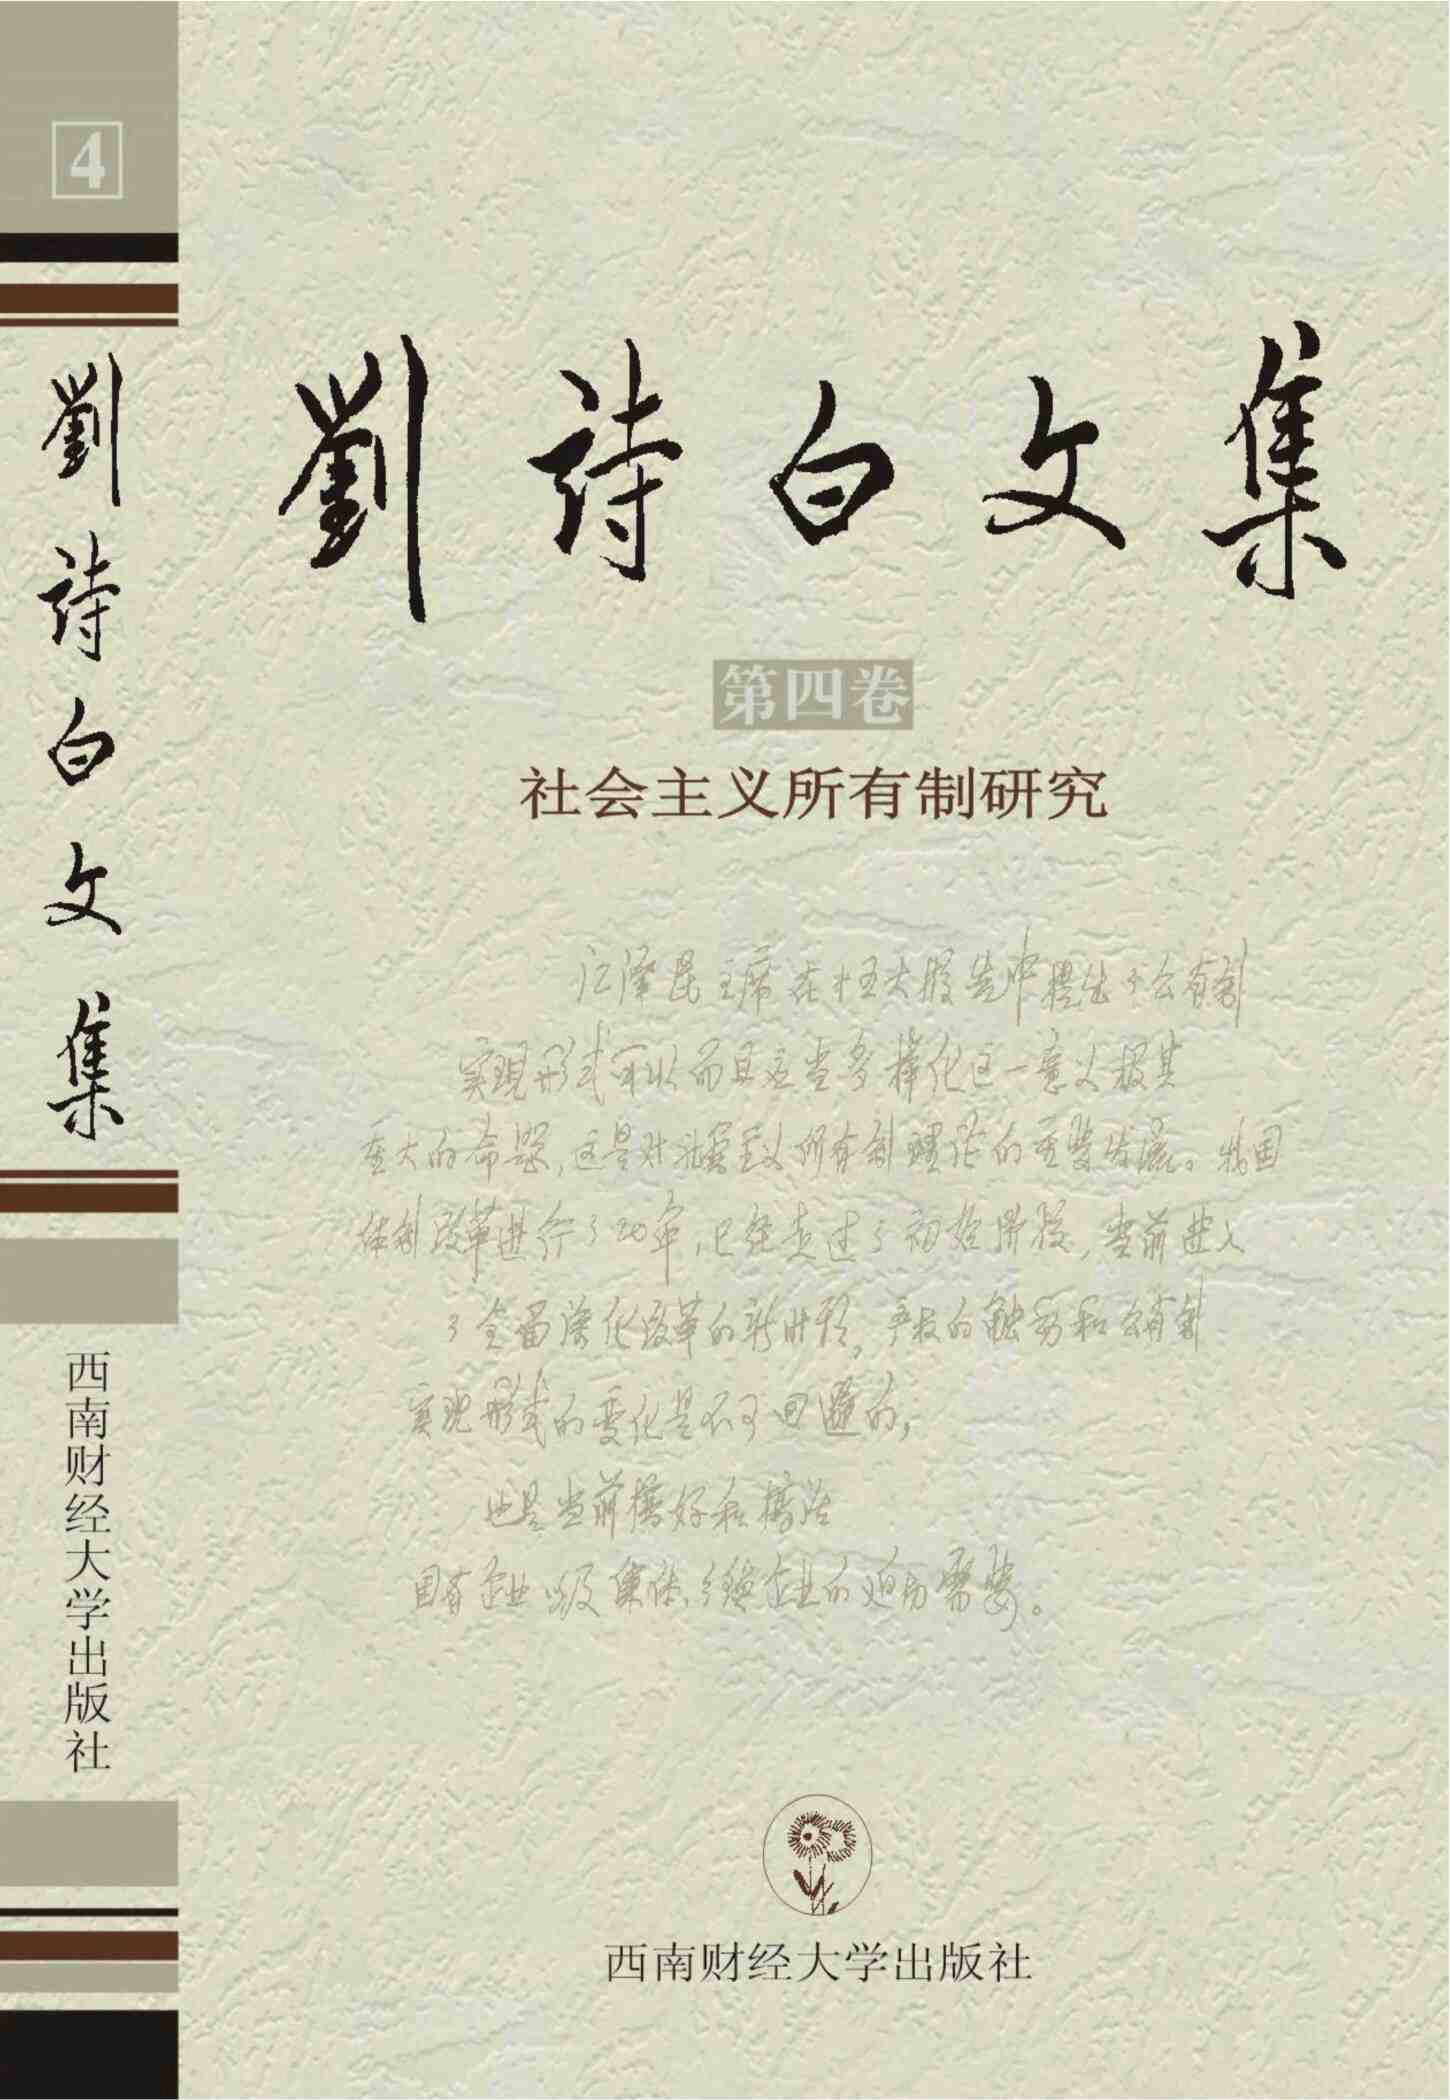 4
劉詩白文集
西南财经大学出版社
劉詩白文集
第四卷
社会主义所有制研究
江泽民主席在十五大报告中提出了公有制
实现形式可以而且应当多样化这一意义极其
重大的命题,这是对社会主义所有制理论的重要发展。我国
体制改革进行了20年,已经走过了初始阶段,当前进入
了全面深化改革的新时期,产权的触动和公有制
实现形式的变化是不可回避的,
也是当前搞好和搞活
国有企业以及集体、乡镇企业的迫切需要。
西南财经大学出版社